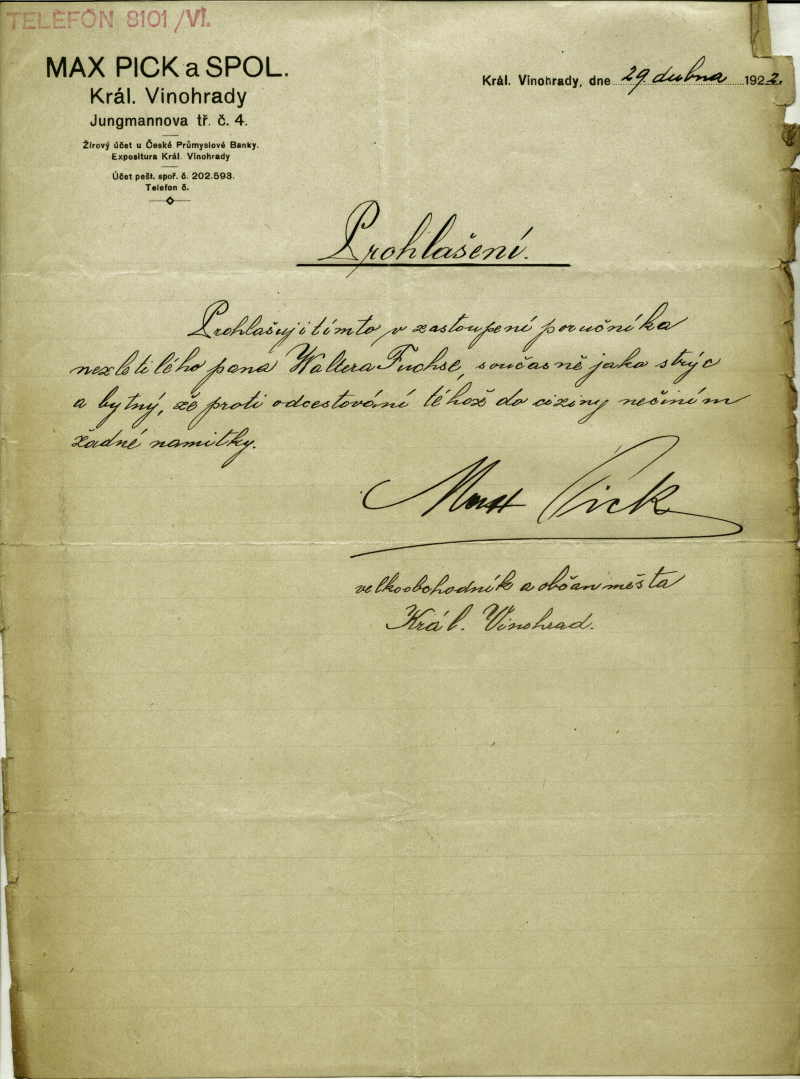 TELEFON 8101/VI.
MAX PICK a SPOL.
Král. Vinohrady
Jungmannova tř. č. 4.
Žírový účet u České Průmyslové Banky.
Expositura Král. Vinohrady
Účet pešt. spoř. č. 202.593.
Telefon č.
Král. Vinohrady, dne 29 dubna 1922.
Prohlašení.
Prohlašuji tímto v zastoupení poručníka
nezletilého pana Waltera Fuchse, současně jako strýc
a bytný, že proti odcestování téhož do ciziny nečiním
žadné namitky.
Max Pick
velkoobchodník a občan města
Král. Vinohrad.